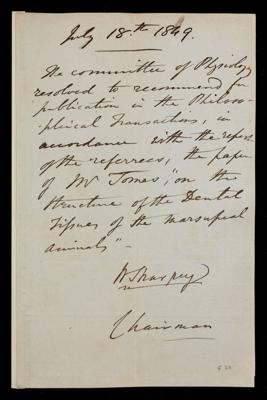 July 18th 1849.
The committee of Physiology
resolved to recommend for
publication in the Philoso-
-phical Transactions, in
accordance with the report
of the referrees, the paper
of Mr Tomes, "on the
structure of the Dental
Tissues of the marsupial
animals"-
W Sharpey
Chairman